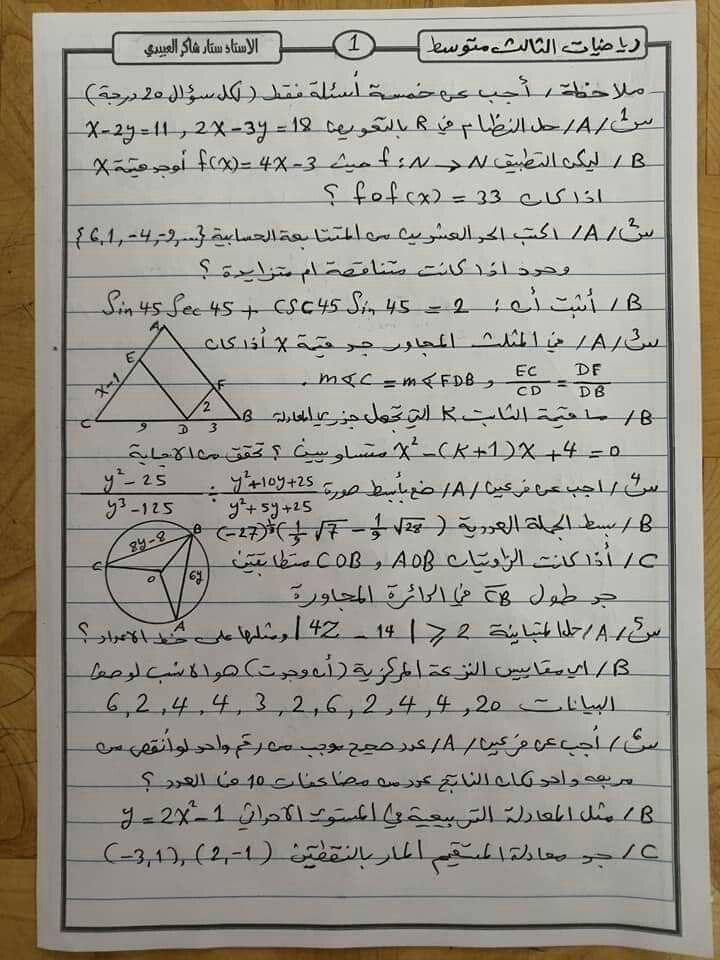 رياضيات الثالث متوسط
1
الاستاذ ستار شاكر العبيدي
ملاحظة / أجب عن خمسة أسئلة فقط (لكل سؤال 20 درجة)
س1/ A/ حل النظام في R بالتعويض x-2y=11 , 2x-3y=18
B/ ليكن التطبيق f:N→N حيث f(x)=4x-3 أوجد قيمة x
اذا كان fof(x) = 33 ؟
س2/ A/ اكتب الحدود العشرين من المتتابعة الحسابية {6,1,-4,-9,...}
وحدد اذا كانت متناقصة ام متزايدة ؟
B/ أثبت أن : Sin45 Sec45 + CSC45 Sin45 = 2
س3/ A/ في المثلث المجاور جد قيمة x أذا كان
m∢C = m∢FDB , EC/CD = DF/DB .
A
E
x-1
F
2
C
9
D
3
B
B/ ما قيمة الثابت K التي تجعل جذري المعادلة
x²-(K+1)x+4=0 متساويين ؟ تحقق من الاجابة
س4/ اجب عن فرعين / A/ ضع بأبسط صورة y²+10y+25/y²+5y+25 ÷ y²-25/y³-125
B/ بسط الجملة العددية (-27)^⅓(1/3 √7 - 1/9 √28)
C/ أذا كانت الزاويتان AOB و COB متطابقتين
جد طول CB في الدائرة المجاورة
B
8y-8
C
O
6y
A
س5/ A/ حل المتباينة |4Z - 14| ⩾ 2 ومثلها على خط الاعداد ؟
B/ اي مقاييس النزعة المركزية (أن وجدت) هو الانسب لوصف
البيانات 6, 2, 4, 4, 3, 2, 6, 2, 4, 4, 20
س6/ أجب عن فرعين / A/ عدد صحيح موجب من رقم واحد لو أنقص من
مربعه واحد لكان الناتج عدد من مضاعفات 10 فما العدد ؟
B/ مثل المعادلة التربيعية في المستوي الاحداثي y=2x²-1
C/ جد معادلة المستقيم المار بالنقطتين (-3,1),(2,-1)